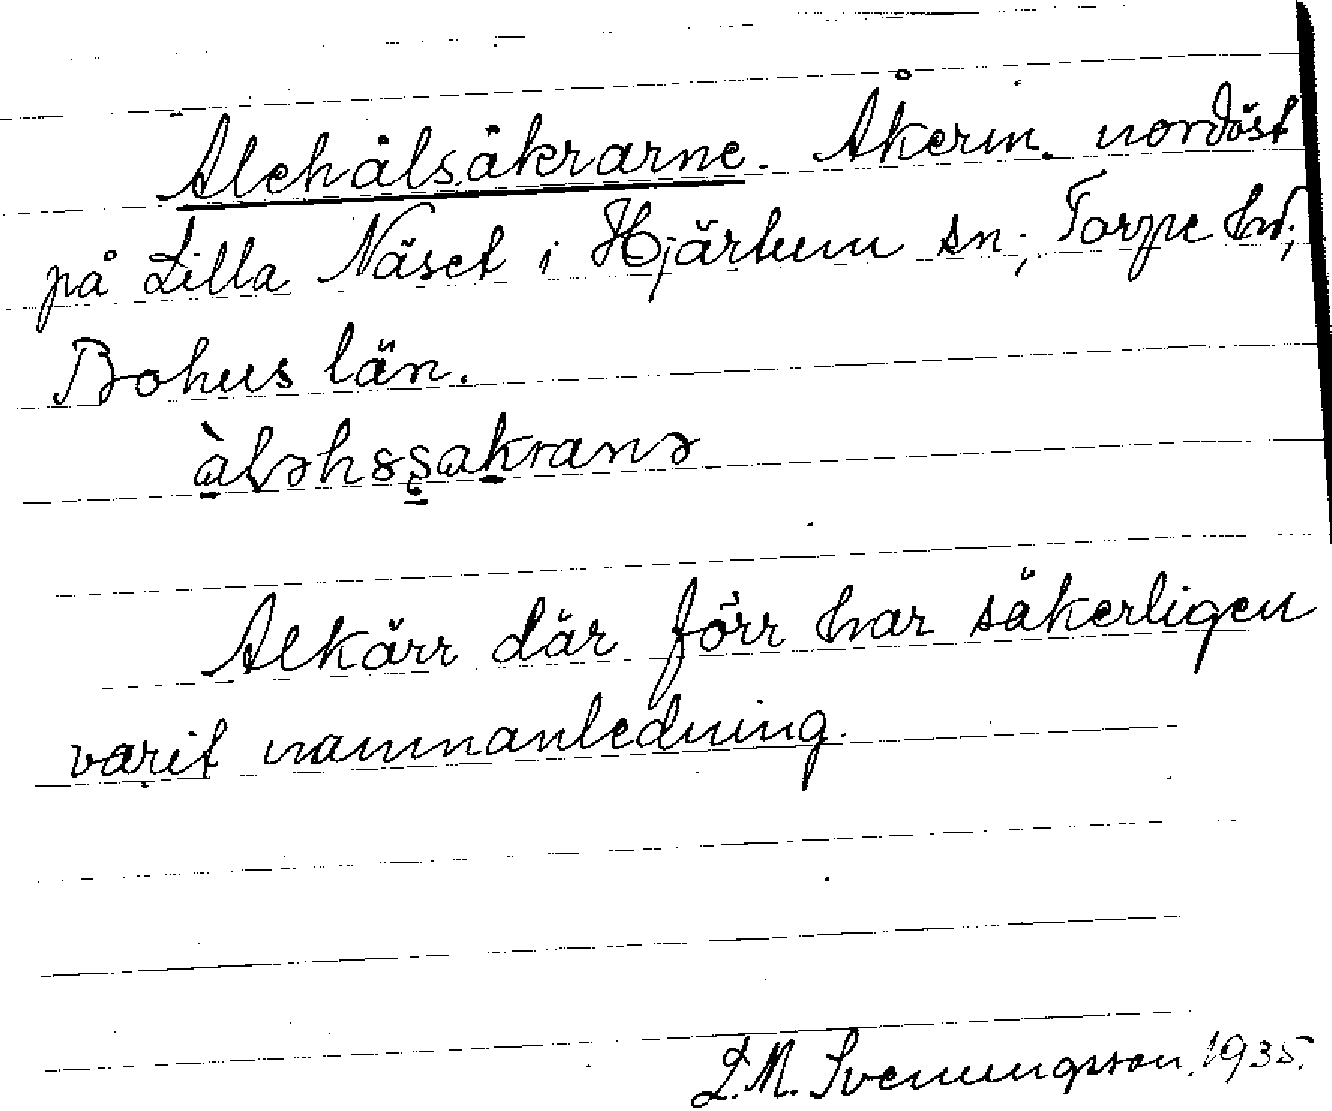 Alehålsåkrarne. Åkerm. nordöst
på Lilla Näset i Hjärtum sn; Torpe hd;
Bohus län.
Alkärr där förr har säkerligen
varit namnanledning.
L.M. Svenungsson. 1935.